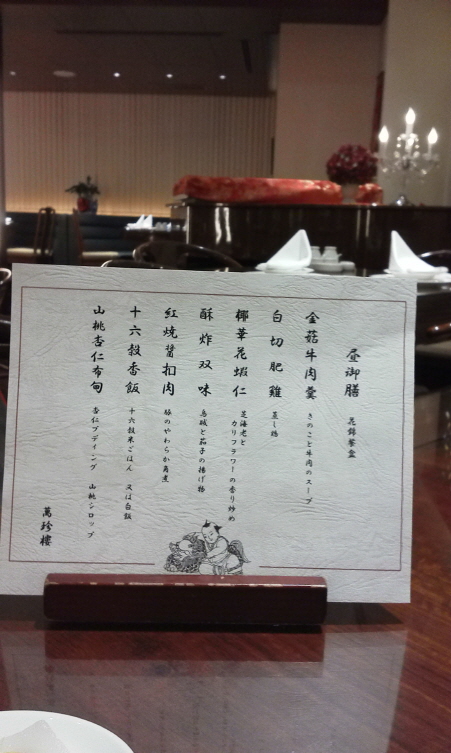 昼御膳　花錦餐盒
金菇牛肉羹　きのこと牛肉のスープ
白切肥雞　蒸し鶏
椰華花蝦仁　芝海老とカリフラワーの香り炒め
酥炸双味　烏賊と茄子の揚げ物
紅焼醤扣肉　豚のやわらか角煮
十六穀香飯　十六穀米ごはん　又は白飯
山桃杏仁布甸　杏仁プディング　山桃シロップ
萬珍樓